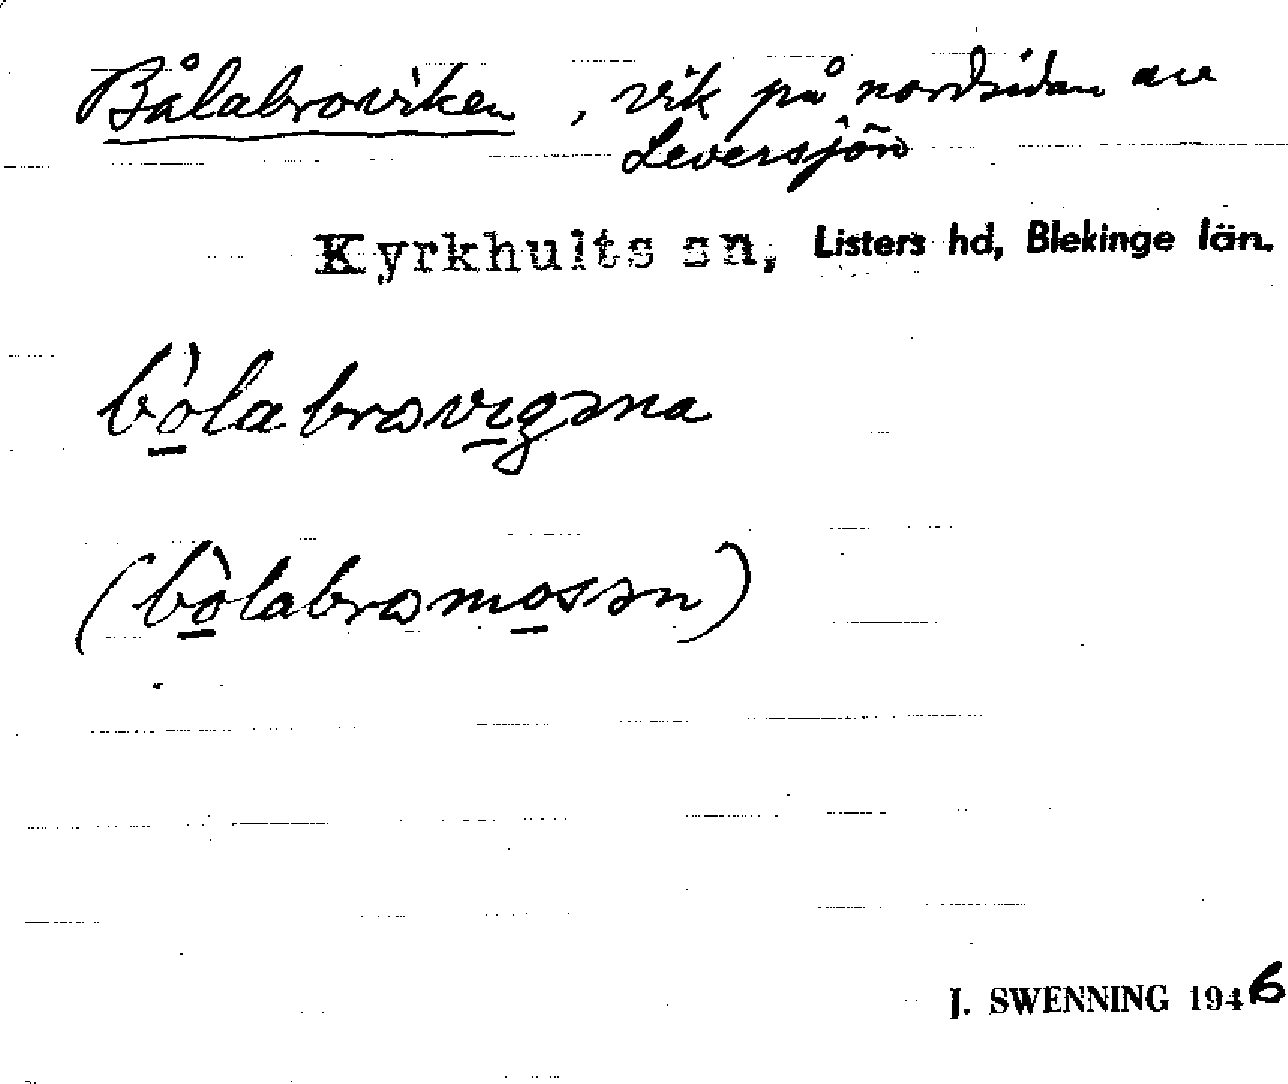 Bålabroviken, vik på nordsidan av
Leversjön
Kyrkhults sn, Listers hd, Blekinge län.
bò̲labrovi̲gəna
(bò̲labromo̲sən)
J. SWENNING 1946